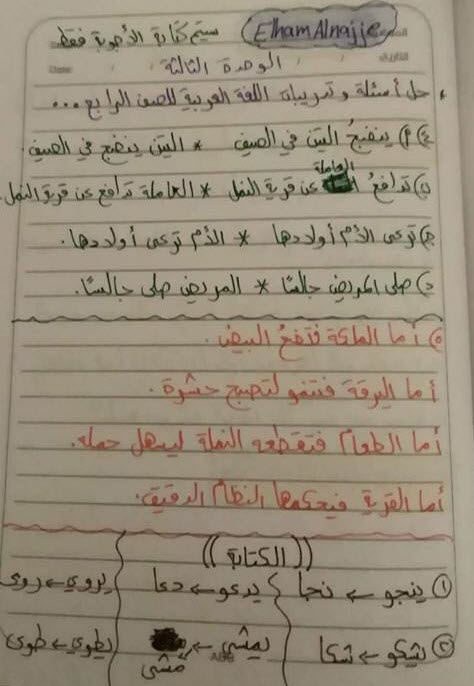 سيتم كتابة الأجوبة فقط Elham Alnajje
الوحدة الثالثة
Date:
حل أسئلة و تدريبات اللغة العربية للصف الرابع...
٤) أ) ينضجُ التين في الصيف * التين ينضج في الصيف.
ب) تدافعُ العاملة عن قرية النمل * العاملة تدافع عن قرية النمل.
ج) ترعى الأم أولادها * الأم ترعى أولادها.
د) صلى المريض جالسًا * المريض صلى جالسًا.
٥) أما الملكة فتضعُ البيض.
أما اليرقة فتنمو لتصبح حشرة.
أما الطعام فتقطعه النملة ليسهل حمله.
أما القرية فيحكمها النظام الدقيق.
((الكتابة))
١) ينجو ← نجا } يدعو ← دعا } يروي ← روى
٢) يشكو ← شكا يمشي ← مشى يطوي ← طوى